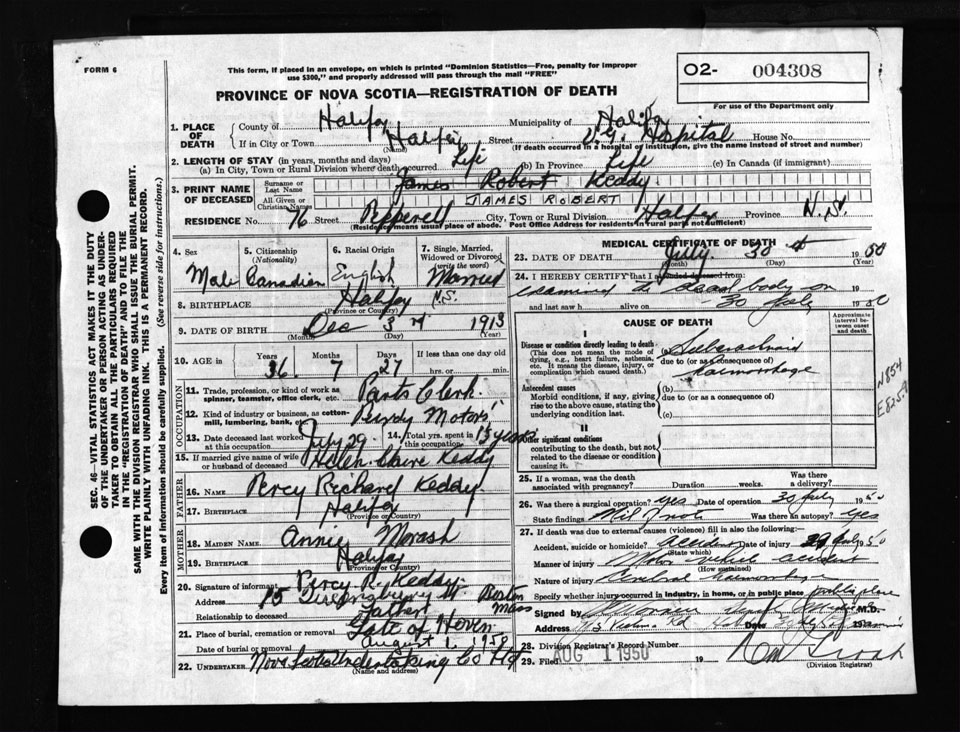 FORM 6
This form, if placed in an envelope, on which is printed "Dominion Statistics—Free, penalty for improper
use $300," and properly addressed will pass through the mail "FREE"
O2- 004308
PROVINCE OF NOVA SCOTIA—REGISTRATION OF DEATH
For use of the Department only
1. PLACE OF DEATH County of Halifax Municipality of Halifax
If in City or Town Halifax Street V.G. Hospital House No.
(Name) (If death occurred in a hospital or institution, give the name instead of street and number)
2. LENGTH OF STAY (in years, months and days)
(a) In City, Town or Rural Division where death occurred Life (b) In Province Life (c) In Canada (if immigrant)
3. PRINT NAME OF DECEASED Surname or Last Name James Robert Keddy
All Given or Christian Names JAMES ROBERT
RESIDENCE No. 76 Street Pepperell City, Town or Rural Division Halifax Province N.S.
(Residence means usual place of abode. Post Office Address for residents in rural parts not sufficient)
4. Sex Male
5. Citizenship (Nationality) Canadian
6. Racial Origin English
7. Single, Married, Widowed or Divorced (write the word) Married
8. BIRTHPLACE Halifax N.S.
(Province or Country)
9. DATE OF BIRTH Dec 3rd 1913
(Month) (Day) (Year)
10. AGE in Years 36 Months 7 Days 27 If less than one day old hrs. or min.
OCCUPATION
11. Trade, profession, or kind of work as spinner, teamster, office clerk, etc. Parts Clerk
12. Kind of industry or business, as cotton-mill, lumbering, bank, etc. Purdy Motors
13. Date deceased last worked at this occupation July 29 14. Total yrs. spent in this occupation 13 years
15. If married give name of wife or husband of deceased Helen Claire Keddy
FATHER
16. NAME Percy Richard Keddy
17. BIRTHPLACE Halifax
(Province or Country)
MOTHER
18. MAIDEN NAME Annie Morash
19. BIRTHPLACE Halifax
(Province or Country)
20. Signature of informant Percy R. Keddy
Address 15 Queensbury St. Boston Mass
Relationship to deceased Father
21. Place of burial, cremation or removal Gate of Heven
Date of burial or removal August 1 1950
22. UNDERTAKER Nova Scotia Undertaking Co Ltd
(Name and Address)
MEDICAL CERTIFICATE OF DEATH
23. DATE OF DEATH July 30 1950
(Month) (Day) (Year)
24. I HEREBY CERTIFY that I attended deceased from:
examined the dead body on 19
and last saw h alive on 30 July 1950
CAUSE OF DEATH
Approximate interval between onset and death
I
Disease or condition directly leading to death
(This does not mean the mode of dying, e.g., heart failure, asthenia, etc. It means the disease, injury, or complication which caused death.)
(a) Subarachnoid
due to (or as a consequence of)
haemorrhage
Antecedent causes
Morbid conditions, if any, giving rise to the above cause, stating the underlying condition last.
(b)
due to (or as a consequence of)
(c)
II
Other significant conditions
contributing to the death, but not related to the disease or condition causing it.
N854
25. If a woman, was the death associated with pregnancy? Duration weeks. Was there a delivery?
26. Was there a surgical operation? Yes Date of operation 30 July 1950
State findings Was there an autopsy? Yes
27. If death was due to external causes (violence) fill in also the following:
Accident, suicide or homicide? accident Date of injury 29 July 1950
(State which)
Manner of injury Motor vehicle accident
(How sustained)
Nature of injury Cerebral haemorrhage
Specify whether injury occurred in Industry, in home, or in public place public place
Signed by M.D.
Address Date 19
28. Division Registrar's Record Number
29. Filed AUG 1 1950 19
(Division Registrar)
SEC. 46—VITAL STATISTICS ACT MAKES IT THE DUTY
OF THE UNDERTAKER OR PERSON ACTING AS UNDER-
TAKER TO OBTAIN ALL THE PARTICULARS REQUIRED
IN THE "REGISTRATION OF DEATH" AND TO FILE THE
SAME WITH THE DIVISION REGISTRAR WHO SHALL ISSUE THE BURIAL PERMIT.
WRITE PLAINLY WITH UNFADING INK. THIS IS A PERMANENT RECORD.
Every item of information should be carefully supplied. (See reverse side for instructions.)